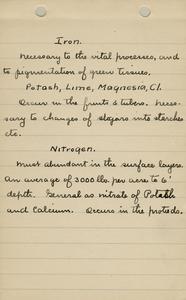 Iron.
Necessary to the vital processes, and
to pigmentation of green tissues.
Potash, Lime, Magnesia, Cl.
Occur in the fruits & tubers. Neces-
sary to changes of sugars into starches
etc.
Nitrogen.
Most abundant in the surface layers.
An average of 3000 lbs. per acre to 6'
depth. General as nitrate of Potash
and Calcium. Occurs in the proteids.